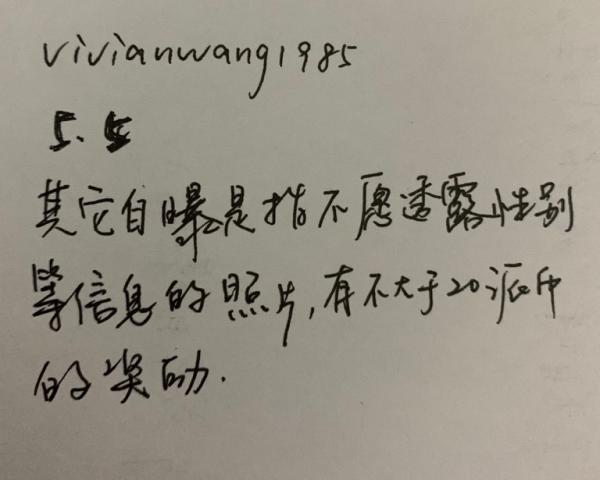 vivianwang1985
5.5
其它自曝是指不愿透露性别
等信息的照片,有不大于20派币
的奖励.